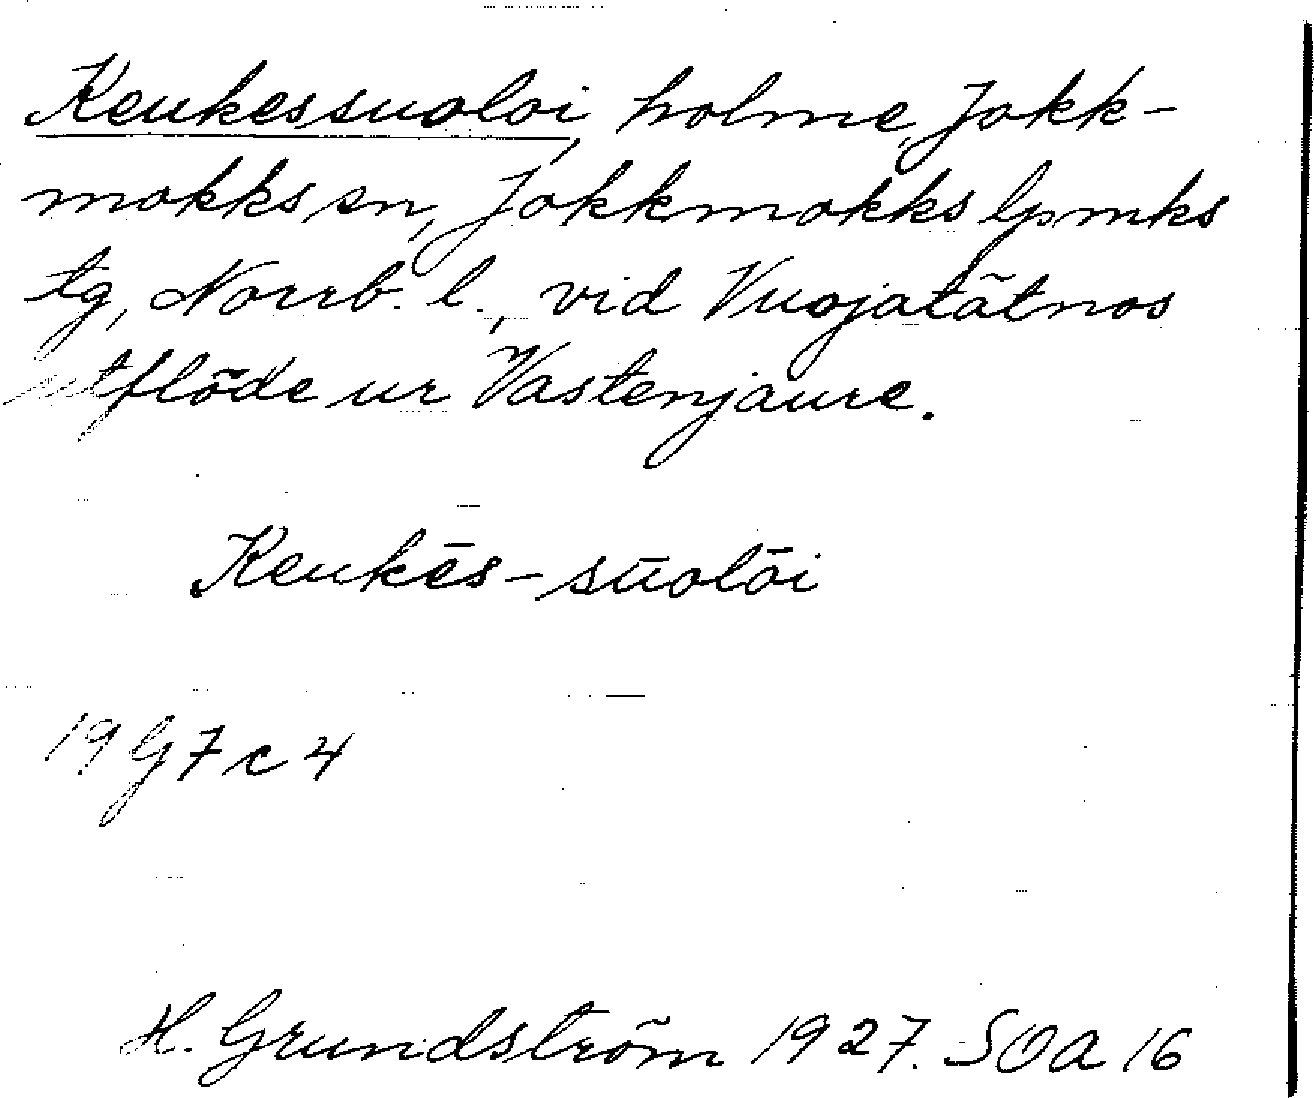 Keukessuoloi, holme, Jokk-
mokks sn, Jokkmokks lpmks
tg, Norrb. l., vid Vuojatätnos
utflöde ur Vastenjaure.
Keukēs-sūolōi
19 G 7 c 4
H. Grundström 1927. SOA 16